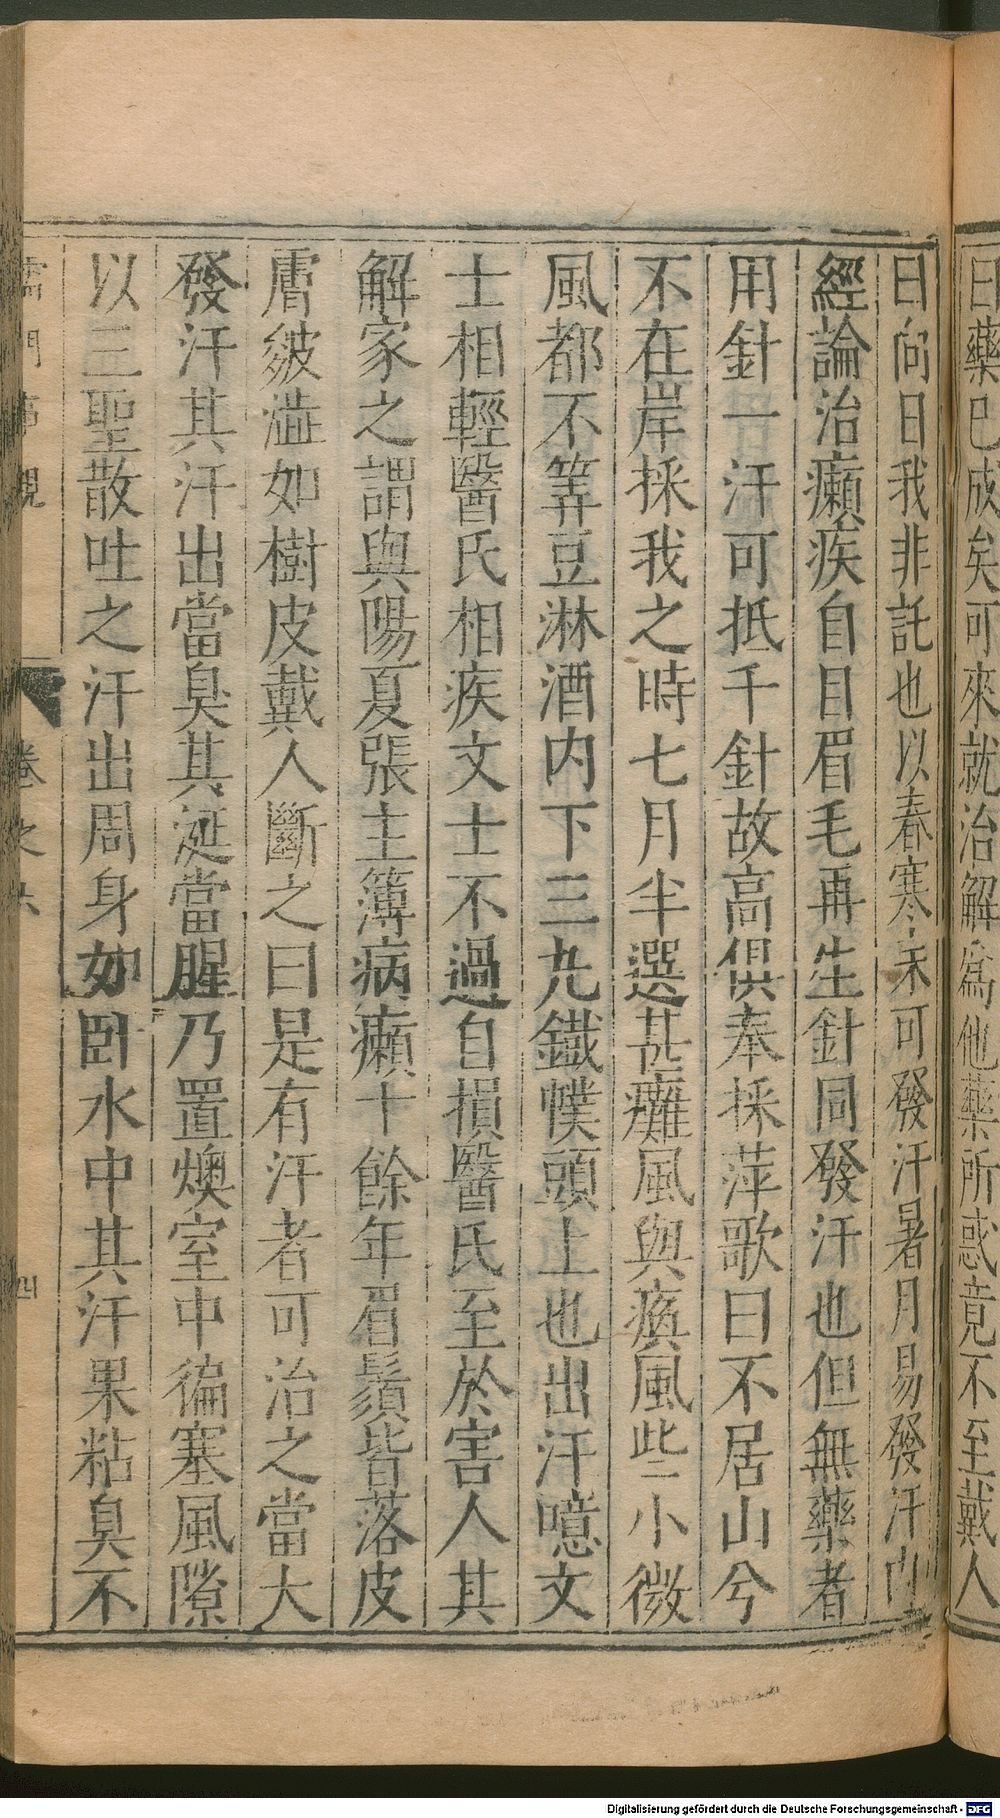 曰藥已成矣可來就治解為他藥所惑竟不至戴人
曰向日我非託也以春寒未可發汗暑月易發汗內
經論治癩疾自目眉毛再生針同發汗也但無藥者
用針一汗可抵千針故高供奉採萍歌曰不居山兮
不在岸採我之時七月半選甚癱風與瘓風些小微
風都不筭豆淋酒内下三丸鐵幞頭上也出汗噫文
士相輕醫氏相疾文士不過自損醫氏至於害人其
解家之謂與陽夏張主簿病癩十餘年眉鬚皆落皮
膚皴澁如樹皮戴人斷之曰是有汗者可治之當大
發汗其汗出當臭其涎當腥乃置燠室中徧塞風隙
以三聖散吐之汗出周身如臥水中其汗果粘臭不
儒門事親 卷之六 四
Digitalisierung gefördert durch die Deutsche Forschungsgemeinschaft - DFG